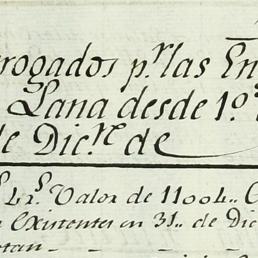 rogados p.r las En
Lana desde 1.o
de Dic.re de
42.s Valor de 11004..
Existentes en 31.. de Dic